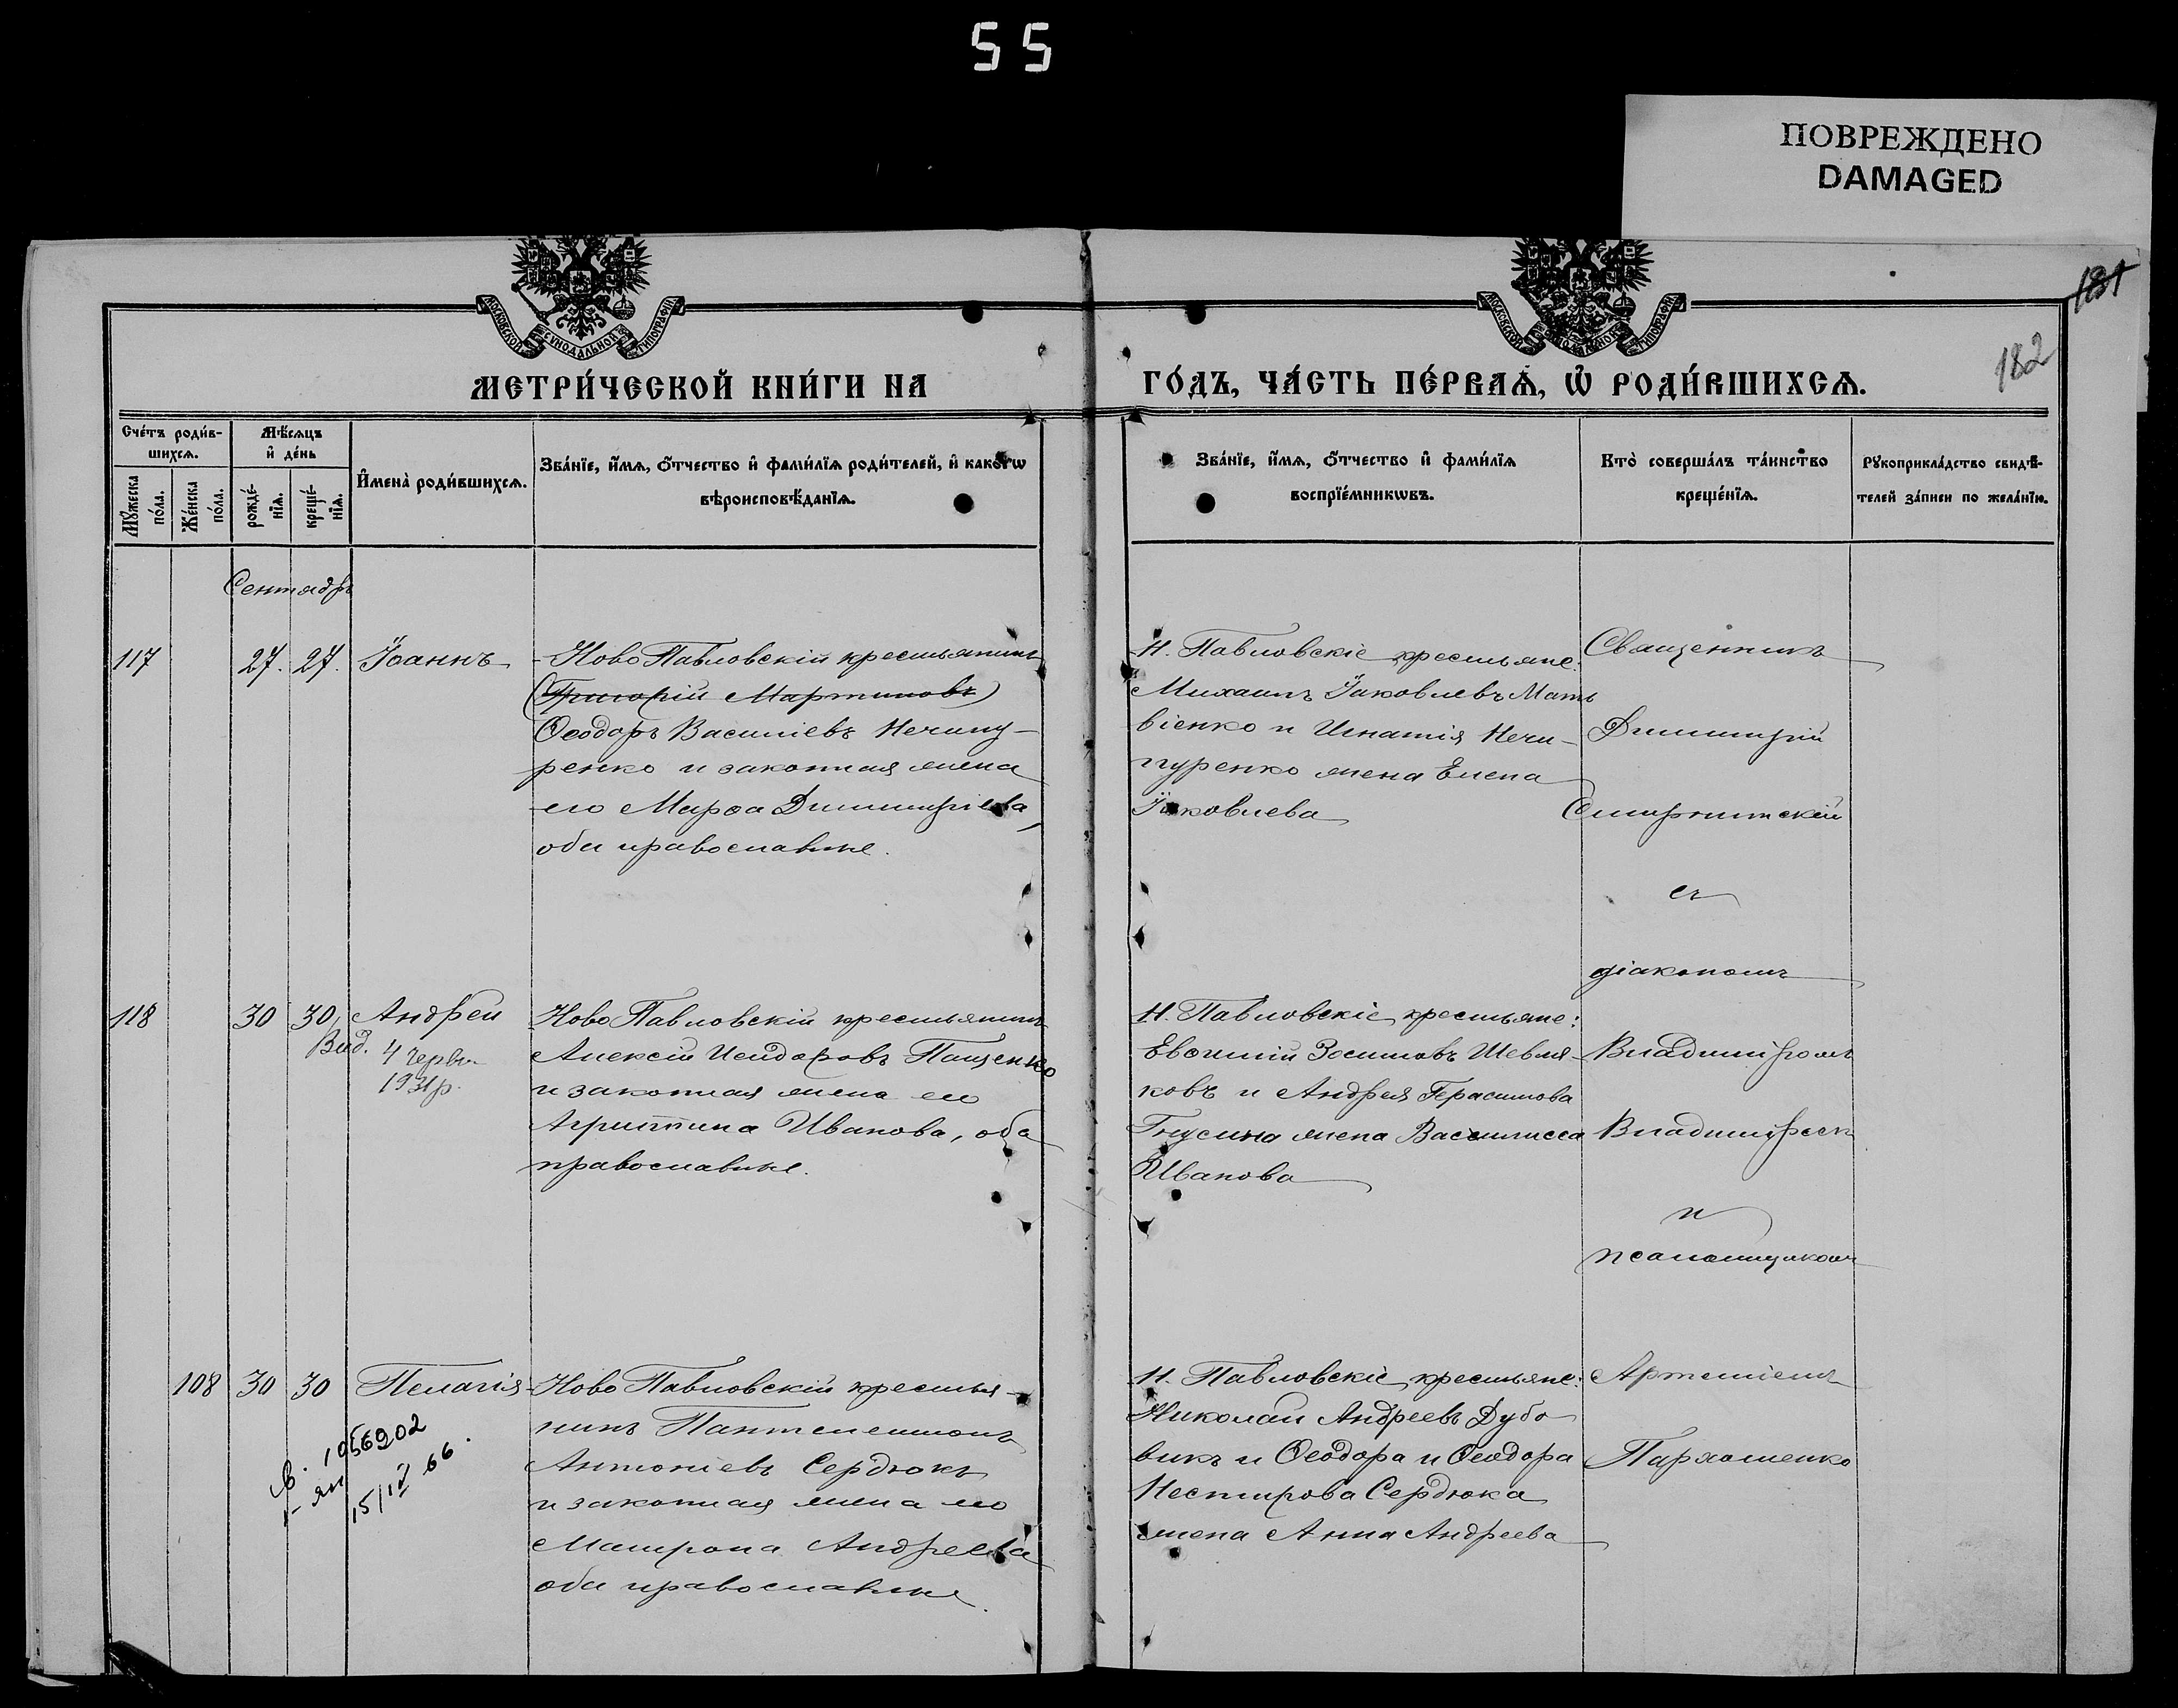 55
ПОВРЕЖДЕНО
DAMAGED
МОСКОВСКОЙ СѴНОДАЛЬНОЙ ТИПОГРАФІИ
МОСКОВСКОЙ СѴНОДАЛЬНОЙ ТИПОГРАФІИ
181
182
МЕТРИ́ЧЕСКОЙ КНИ́ГИ НА
ГО́ДЪ, ЧА́СТЬ ПЕ́РВАѦ, Ѡ҆ РОДИ́ВШИХСѦ.
Сче́тъ роди́в-
шихсѧ.
Мꙋ́жеска
по́ла.
Же́нска
по́ла.
Мѣ́сѧцъ
и҆ де́нь
рожде́-
нїѧ.
креще́-
нїѧ.
И҆мена̀ роди́вшихсѧ.
Зва́нїе, и҆́мѧ, ѻ҆́тчество и҆ фами́лїѧ роди́телей, и҆ како́гѡ
вѣроисповѣ́данїѧ.
Зва́нїе, и҆́мѧ, ѻ҆́тчество и҆ фами́лїѧ
воспрїе́мникѡвъ.
Кто̀ соверша́лъ та́инство
креще́нїѧ.
Рꙋкоприкла́дство свидѣ́-
телей за́писи по жела́нїю.
Сентябрь
117
27. 27.
Іоаннъ
Ново Павловскій крестьянинъ
(Григорій Мартиновъ)
Ѳеодоръ Василіевъ Нечипу-
ренко и законная жена
его Марѳа Димитріева,
оба православные.
Н. Павловскіе крестьяне:
Михаилъ Іаковлевъ Мат
віенко и Игнатія Нечи-
пуренко жена Елена
Іаковлева
Священникъ
Димитрій
съ
діакономъ
118
30 30
Андрей
Вид. 4 червн
1931р.
Ново Павловскій крестьянинъ
Алексій Исидоровъ Пащенко
и законная жена его
Агрипина Иванова, оба
православные.
Н. Павловскіе крестьяне:
Евѳимій Зосимовъ Шевля-
ковъ и Андрея Герасимова
жена Василисса
Иванова
Владиміромъ
и
псаломщикомъ
108
30 30
Пелагія
1056902
15/IV 66.
Ново Павловскій крестья-
нинъ Пантелеимонъ
Антоніевъ Сердюкъ
и законная жена его
Матрона Андреева
оба православные.
Н. Павловскіе крестьяне:
Николай Андреевъ Дубо
викъ и Ѳеодора и Ѳеодора
Нестирова Сердюка
жена Анна Андреева
Артеміемъ
Пархоменко